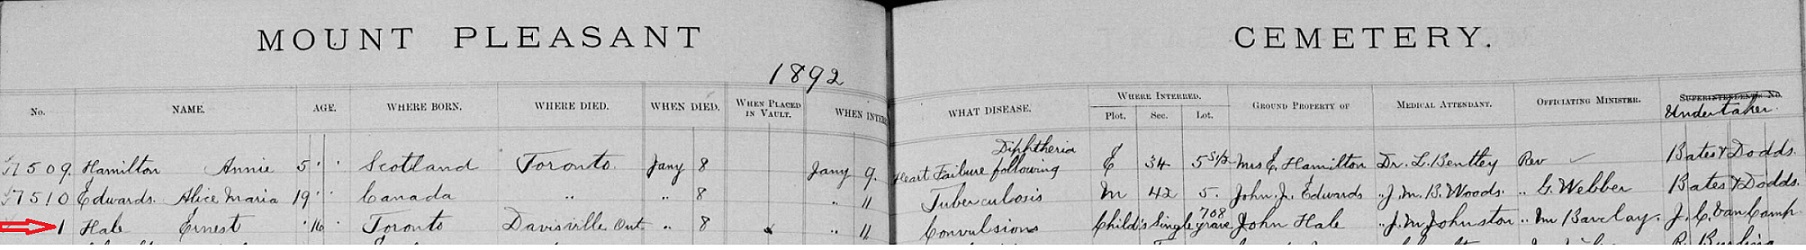 MOUNT PLEASANT CEMETERY.
1892
No. NAME. AGE. WHERE BORN. WHERE DIED. WHEN DIED. WHEN PLACED IN VAULT. WHEN INTER WHAT DISEASE. WHERE INTERRED. Plot. Sec. Lot. GROUND PROPERTY OF MEDICAL ATTENDANT. OFFICIATING MINISTER. SUPERINTENDENT'S NO. Undertaker.
7509 Hamilton Annie 5 " " Scotland Toronto Jany 8 Jany 9. Heart Failure following Diphtheria E 34 5 S½ Mrs E. Hamilton Dr. L. Bentley Rev Bates & Dodds.
7510 Edwards. Alice Maria 19 " Canada " " 8 " 11 Tuberculosis M 42 5. John J. Edwards " J.M.B. Woods. " G. Webber Bates & Dodds.
1 Hale Ernest " 16 " Toronto Davisville Ont " 8 " 11 Convulsions Child's Single Grave 708 John Hale " J.M. Johnston " M Barclay. J.C. Van Camp